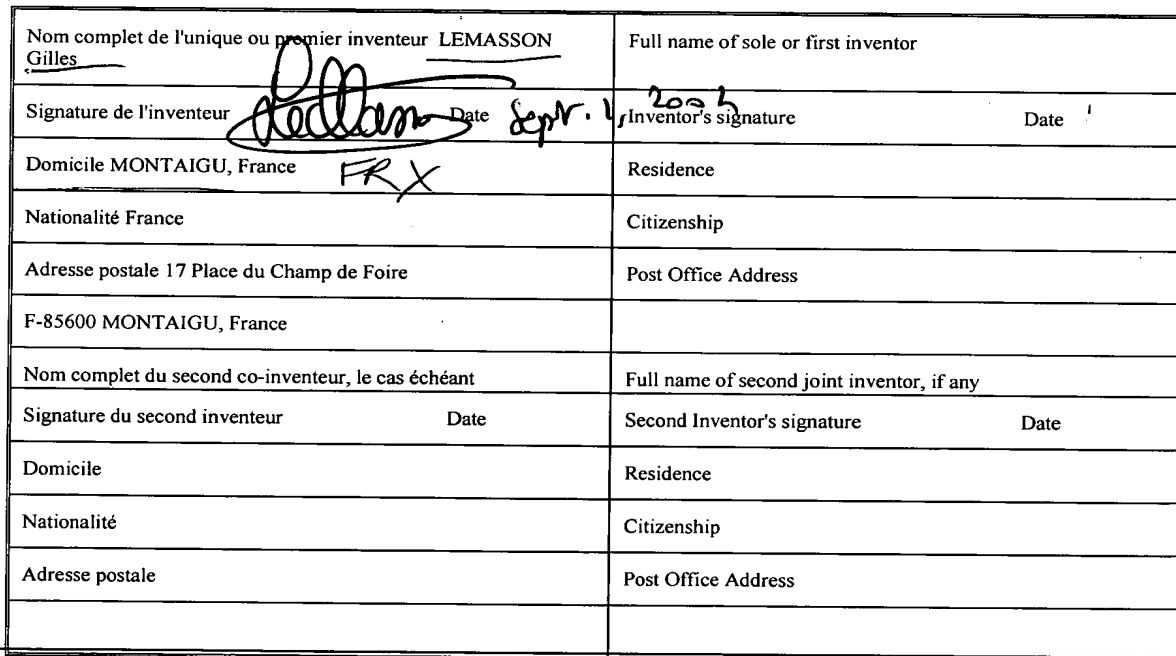 Nom complet de l'unique ou premier inventeur LEMASSON
Gilles
Full name of sole or first inventor
Signature de l'inventeur Date Sept. 2002
Inventor's signature Date
Domicile MONTAIGU, France FRX
Residence
Nationalité France
Citizenship
Adresse postale 17 Place du Champ de Foire
Post Office Address
F-85600 MONTAIGU, France
Nom complet du second co-inventeur, le cas échéant
Full name of second joint inventor, if any
Signature du second inventeur Date
Second Inventor's signature Date
Domicile
Residence
Nationalité
Citizenship
Adresse postale
Post Office Address